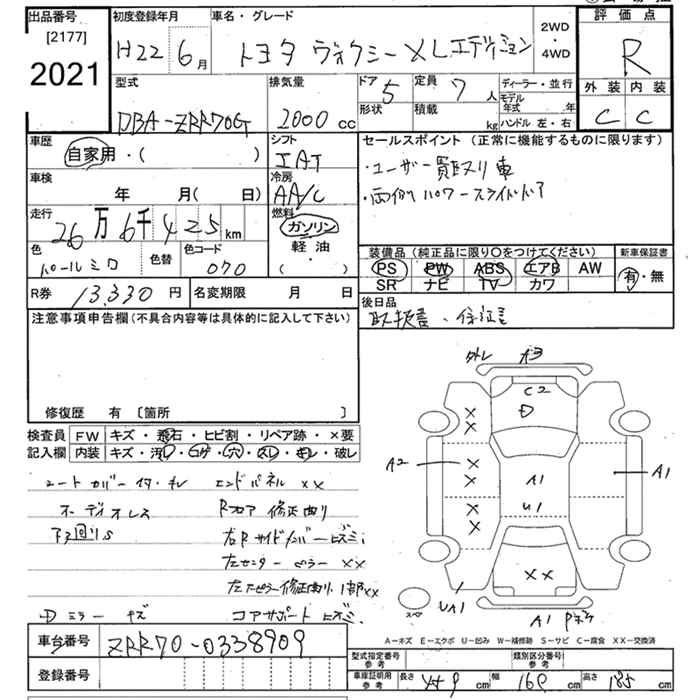 出品番号
[2177]
2021
初度登録年月
H22 6月
車名・グレード
トヨタ ヴォクシー XLエディション
2WD
・
4WD
評価点
R
外装 内装
C C
型式
DBA-ZRR70G
排気量
2000cc
ドア 5
形状
定員 7人
積載 kg
ディーラー・並行
モデル年式 年
ハンドル 左・右
車歴
自家用・( )
シフト
IAT
セールスポイント(正常に機能するものに限ります)
・ユーザー買取り車
・両側パワースライドドア
車検
年 月( 日)
冷房
AA/C
走行
26万6千425km
燃料
ガソリン
軽油
・( )
色
パールシロ
色替
色コード
070
装備品(純正品に限り〇をつけてください)
PS PW ABS エアB AW
SR ナビ TV カワ
新車保証書
有・無
R券 13,330円
名変期限 月 日
後日品
取扱書・保証書
注意事項申告欄(不具合内容等は具体的に記入して下さい)
修復歴 有 [箇所 ]
検査員
記入欄
FW キズ・飛石・ヒビ割・リペア跡・×要
内装 キズ・汚れ・コゲ・穴・スレ・キレ・破レ
シートカバー イタ・キレ
オーディオレス
下回りS
Dミラー キズ
エンドパネル XX
Rフロア 修正有り
右Rサイドメンバー ヒズミ
左センターピラー XX
コアサポート ヒズミ
外レ A3
C2
D
A2
A1
A1
U1
XX
UA1
A1 Pキズ
スペア
A-キズ E-エクボ U-凹み W-補修跡 S-サビ C-腐食 XX-交換済
車台番号 ZRR70-0338909
登録番号
型式指定番号
参考
類別区分番号
参考
車庫証明用
参考
長さ 459cm
幅 169cm
高さ 185cm